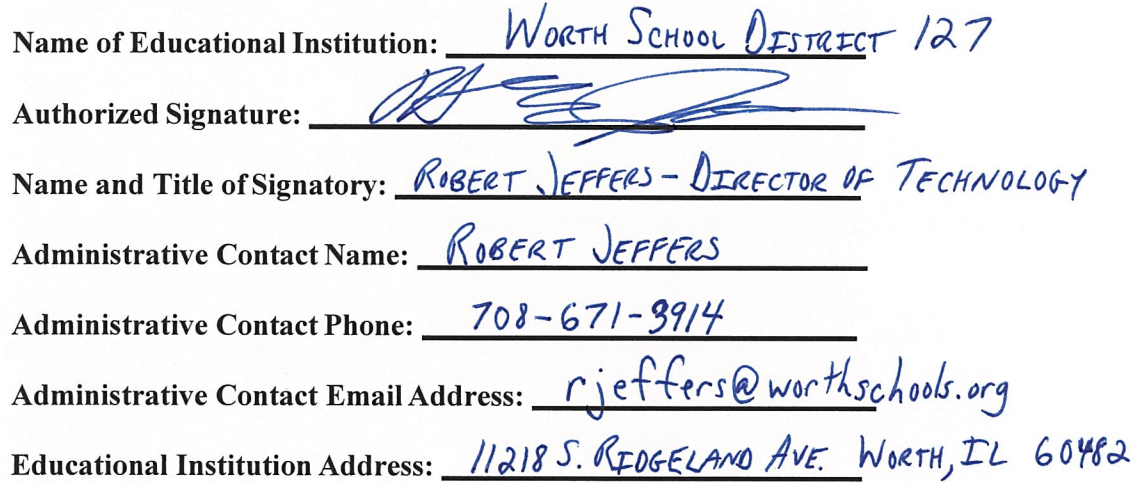 Name of Educational Institution: WORTH SCHOOL DISTRICT 127
Authorized Signature:
Name and Title of Signatory: ROBERT JEFFERS - DIRECTOR OF TECHNOLOGY
Administrative Contact Name: ROBERT JEFFERS
Administrative Contact Phone: 708-671-3914
Administrative Contact Email Address: rjeffers@worthschools.org
Educational Institution Address: 11218 S. RIDGELAND AVE. WORTH, IL 60482